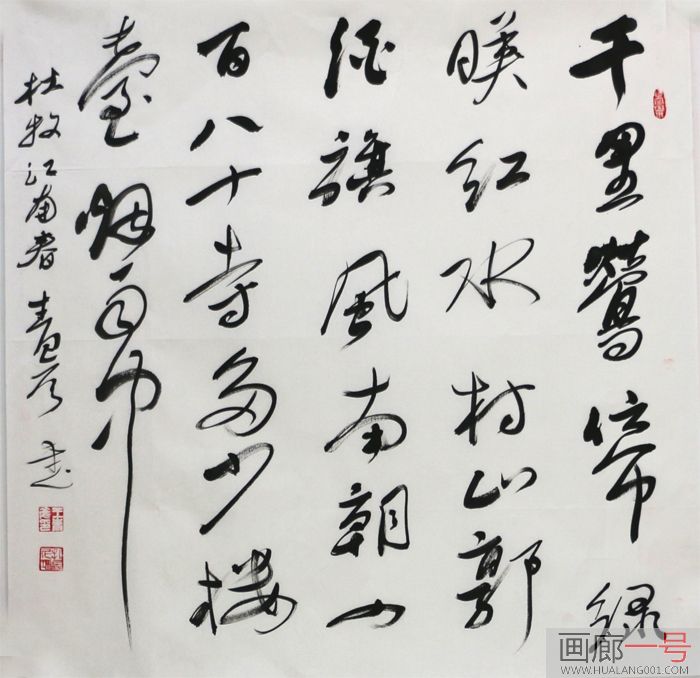 千里鶯啼绿
暎红水村山郭
酒旗風南朝四
百八十寺多少楼
臺烟雨中
杜牧江南春 书
画廊一号
WWW.HUALANG001.COM